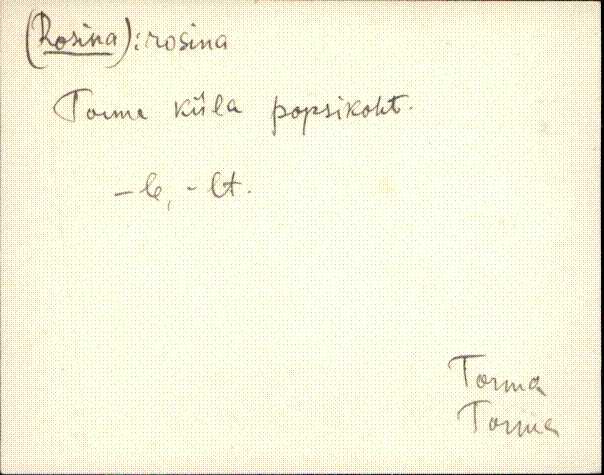 (Rosina): rosina
Torma küla popsikoht.
-le, -lt.
Torma
Torma